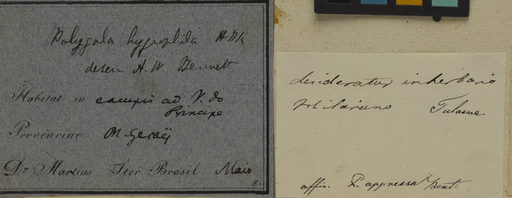 Polygala hygrophila HBK
determ A. W. Bennett
Habitat in campis ad V. do
Principe
Provinciae M. Geraës
Dr Martius Iter Brasil. Maio
desideratur in herbario
Hilariano Tulasne.
affin. P. appressa Bent.